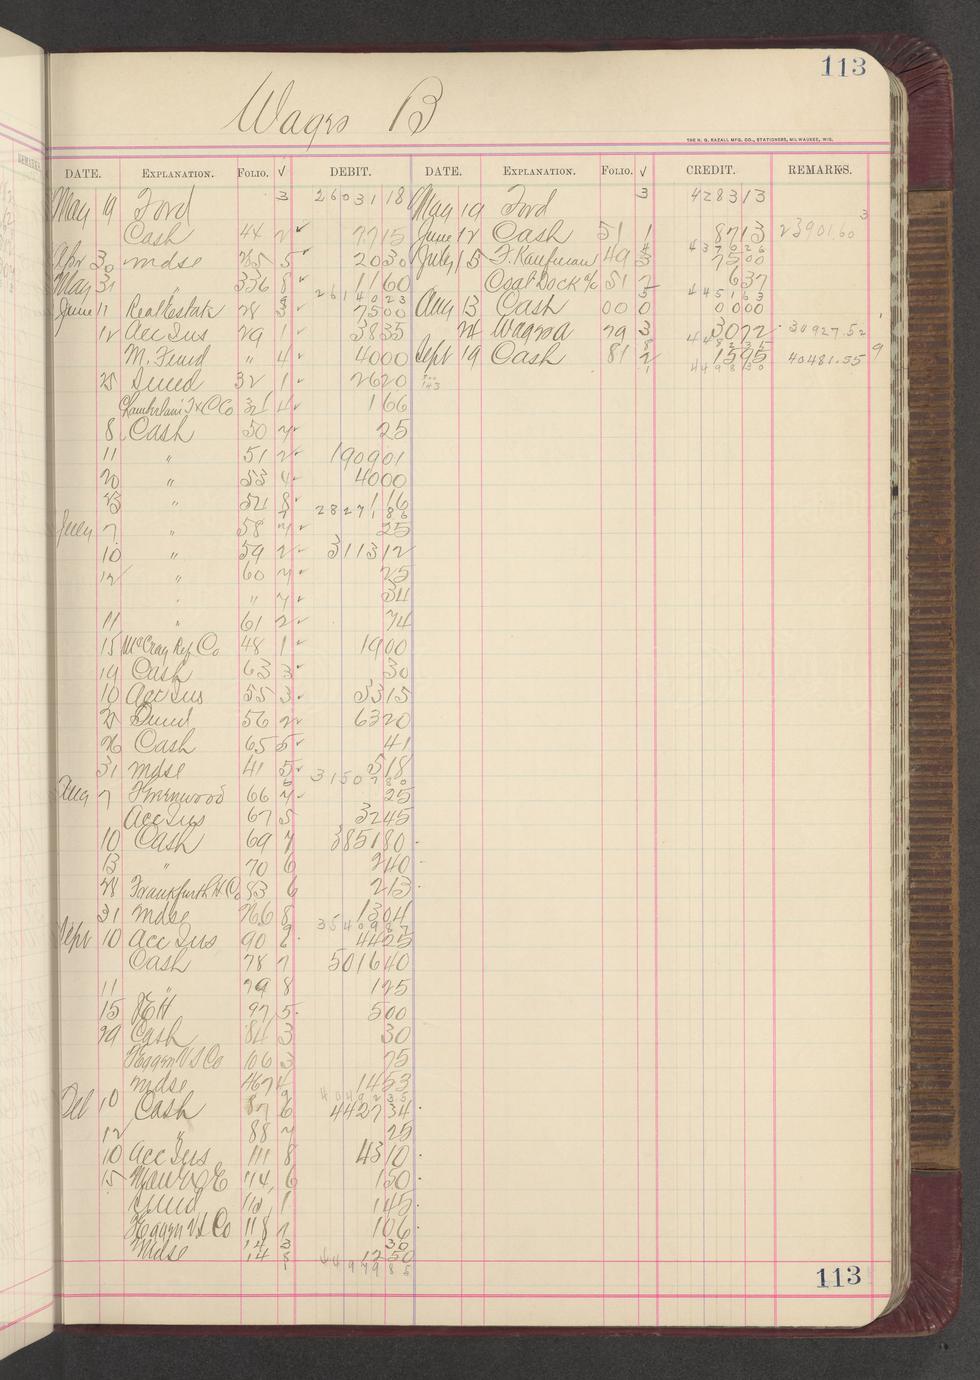 113
Wages B
THE H. G. RAZALL MFG. CO., STATIONERS, MILWAUKEE, WIS.
DATE. EXPLANATION. FOLIO. √ DEBIT. DATE. EXPLANATION. FOLIO. √ CREDIT. REMARKS.
May 19 Ford 3 26031 18 May 19 Ford 3 4283 13
Cash 44 2 77 15 June 12 Cash 51 1 87 13 23901.60
Apr 30 Mdse 285 5 20 30 July 15 F. Kaufman 49 3 75 00
May 31 " 336 8 11 60 Coal Dock % 51 2 6 37
June 11 Real Estate 28 3 75 00 Aug 13 Cash 00 0 00 00
12 Acc Ins 29 1 38 35 24 Wagna 79 3 30 72 30927.52
M. Fund " 4 40 00 Sept 19 Cash 81 2 15 95 40481.55
25 Sund 32 1 26 20
Chamberlain 4 1 66
8 Cash 50 7 25
11 " 51 2 1909 01
20 " 53 4 40 00
23 " 54 8 1 16
July 7 " 58 7 25
10 " 59 2 3113 12
12 " 60 7 25
" 7 34
11 " 61 2 74
15 McCray Ref. Co 48 1 19 00
19 Cash 63 3 30
10 Acc Ins 55 3 33 15
25 Sund 56 2 63 20
26 Cash 65 5 41
31 Mdse 41 5 5 18
Aug 7 66 7 25
Acc Ins 67 5 32 45
10 Cash 69 7 3851 80
13 " 70 6 2 40
28 Frankfurth H Co 83 6 2 13
31 Mdse 266 8 13 04
Sept 10 Acc Ins 90 2 44 25
Cash 78 7 5016 40
11 " 79 8 1 25
15 97 5 5 00
29 Cash 84 3 30
V S Co 106 3 75
Mdse 467 4 14 53
Oct 10 Cash 87 6 4427 34
12 " 88 7 25
10 Acc Ins 111 8 43 10
15 114 6 1 50
Sund 112 1 1 45
V S Co 118 7 1 06
Mdse 14 8 12 50
113